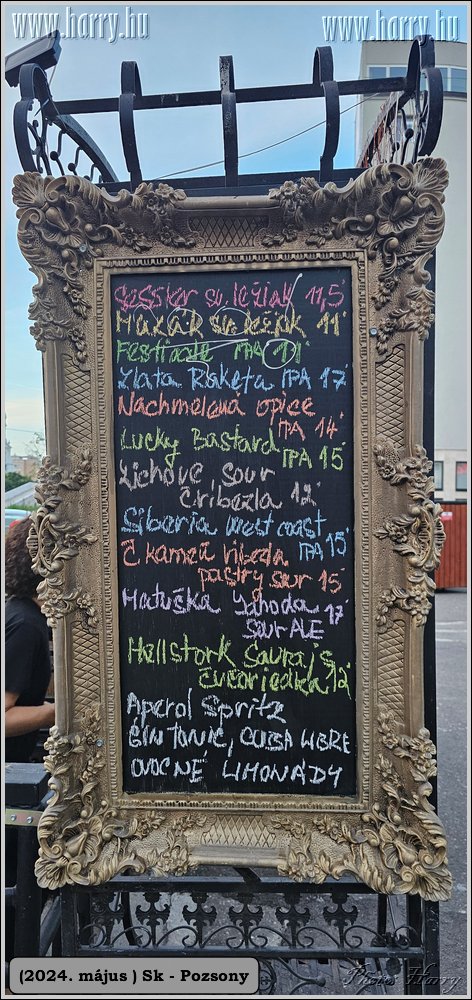 www.harry.hu www.harry.hu
Sessler sv. ležiak 11,5°
Mazák sv. ležiak 11°
Festivale IPA 11°
Zlata Raketa IPA 17°
Nachmelená opice
IPA 14°
Lucky Bastard
IPA 15°
Zichovec Sour
Čribezla 12°
Siberia west coast
IPA 15°
Č kameň ribezla
pastry sour 15°
Matuška Jahoda 17°
SOUR ALE
Hellstork Sour
čučoriedka 12°
Aperol Spritz
GIN TONIC, CUBA LIBRE
OVOCNÉ LIMONÁDY
(2024. május ) Sk - Pozsony
Photo Harry